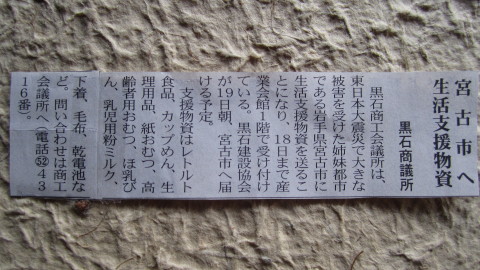 宮古市へ
生活支援物資
黒石商議所
黒石商工会議所は、
東日本大震災で大きな
被害を受けた姉妹都市
である岩手県宮古市に
生活支援物資を送るこ
とになり、18日まで産
業会館1階で受け付け
ている。黒石建設協会
が19日朝、宮古市へ届
ける予定。
支援物資はレトルト
食品、カップめん、生
理用品、紙おむつ、高
齢者用おむつ、ほ乳び
ん、乳児用粉ミルク、
下着、毛布、乾電池な
ど。問い合わせは商工
会議所へ(電話52局43
16番)。